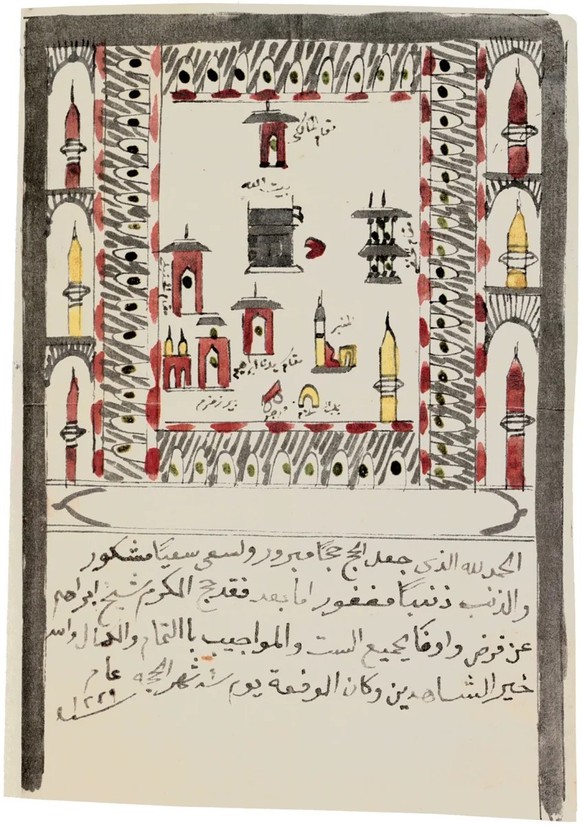 بيت الله
المنبر
مقام سيدنا ابراهيم
بير زمزم
الحمد لله الذي جعل الحج حجاً مبرور ولسعي سعياً مشكور
والذنب ذنباً مغفور اما بعد فقد حج المكرم شيخ ابراهم
عن فرض واوفا بجميع الست والمواجيب باالتمام والكمال والله
خير الشاهدين وكان الوقفة يوم شهر الحجه عام
١٢٢٩ سنة